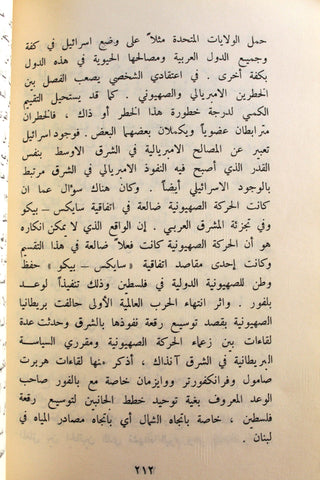 حمل الولايات المتحدة مثلاً على وضع اسرائيل في كفة
وجميع الدول العربية ومصالحها الحيوية في هذه الدول
بكفة أخرى . في اعتقادي الشخصي يصعب الفصل بين
الخطرين الامبريالي والصهيوني . كما قد يستحيل التقييم
الكمي لدرجة خطورة هذا الخطر أو ذاك ، فالخطران
مترابطان عضوياً ويكملان بعضهما البعض . فوجود اسرائيل
تعبير عن المصالح الامبريالية في الشرق الاوسط بنفس
القدر الذي أصبح فيه النفوذ الامبريالي في الشرق مرتبط
بالوجود الاسرائيلي أيضاً . وكان هناك سؤال عما ان
كانت الحركة الصهيونية ضالعة في اتفاقية سايكس - بيكو
وفي تجزئة المشرق العربي . إن الواقع الذي لا يمكن انكاره
هو أن الحركة الصهيونية كانت فعلاً ضالعة في هذا التقسيم
وكانت إحدى مقاصد اتفاقية « سايكس - بيكو » حفظ
وطن للصهيونية الدولية في فلسطين وذلك تنفيذاً لوعد
بلفور . واثر انتهاء الحرب العالمية الأولى حالفت بريطانيا
الصهيونية بقصد توسيع رقعة نفوذها بالشرق وحدثت عدة
لقاءات بين زعماء الحركة الصهيونية ومقرري السياسة
البريطانية في الشرق آنذاك ، أذكر منها لقاءات هربرت
صامول وفرانكفورتر ووايزمان خاصة مع بالفور صاحب
الوعد المعروف بغية توحيد خطط الجانبين لتوسيع رقعة
فلسطين ، خاصة باتجاه الشمال أي باتجاه مصادر المياه في
لبنان .
٢١٢